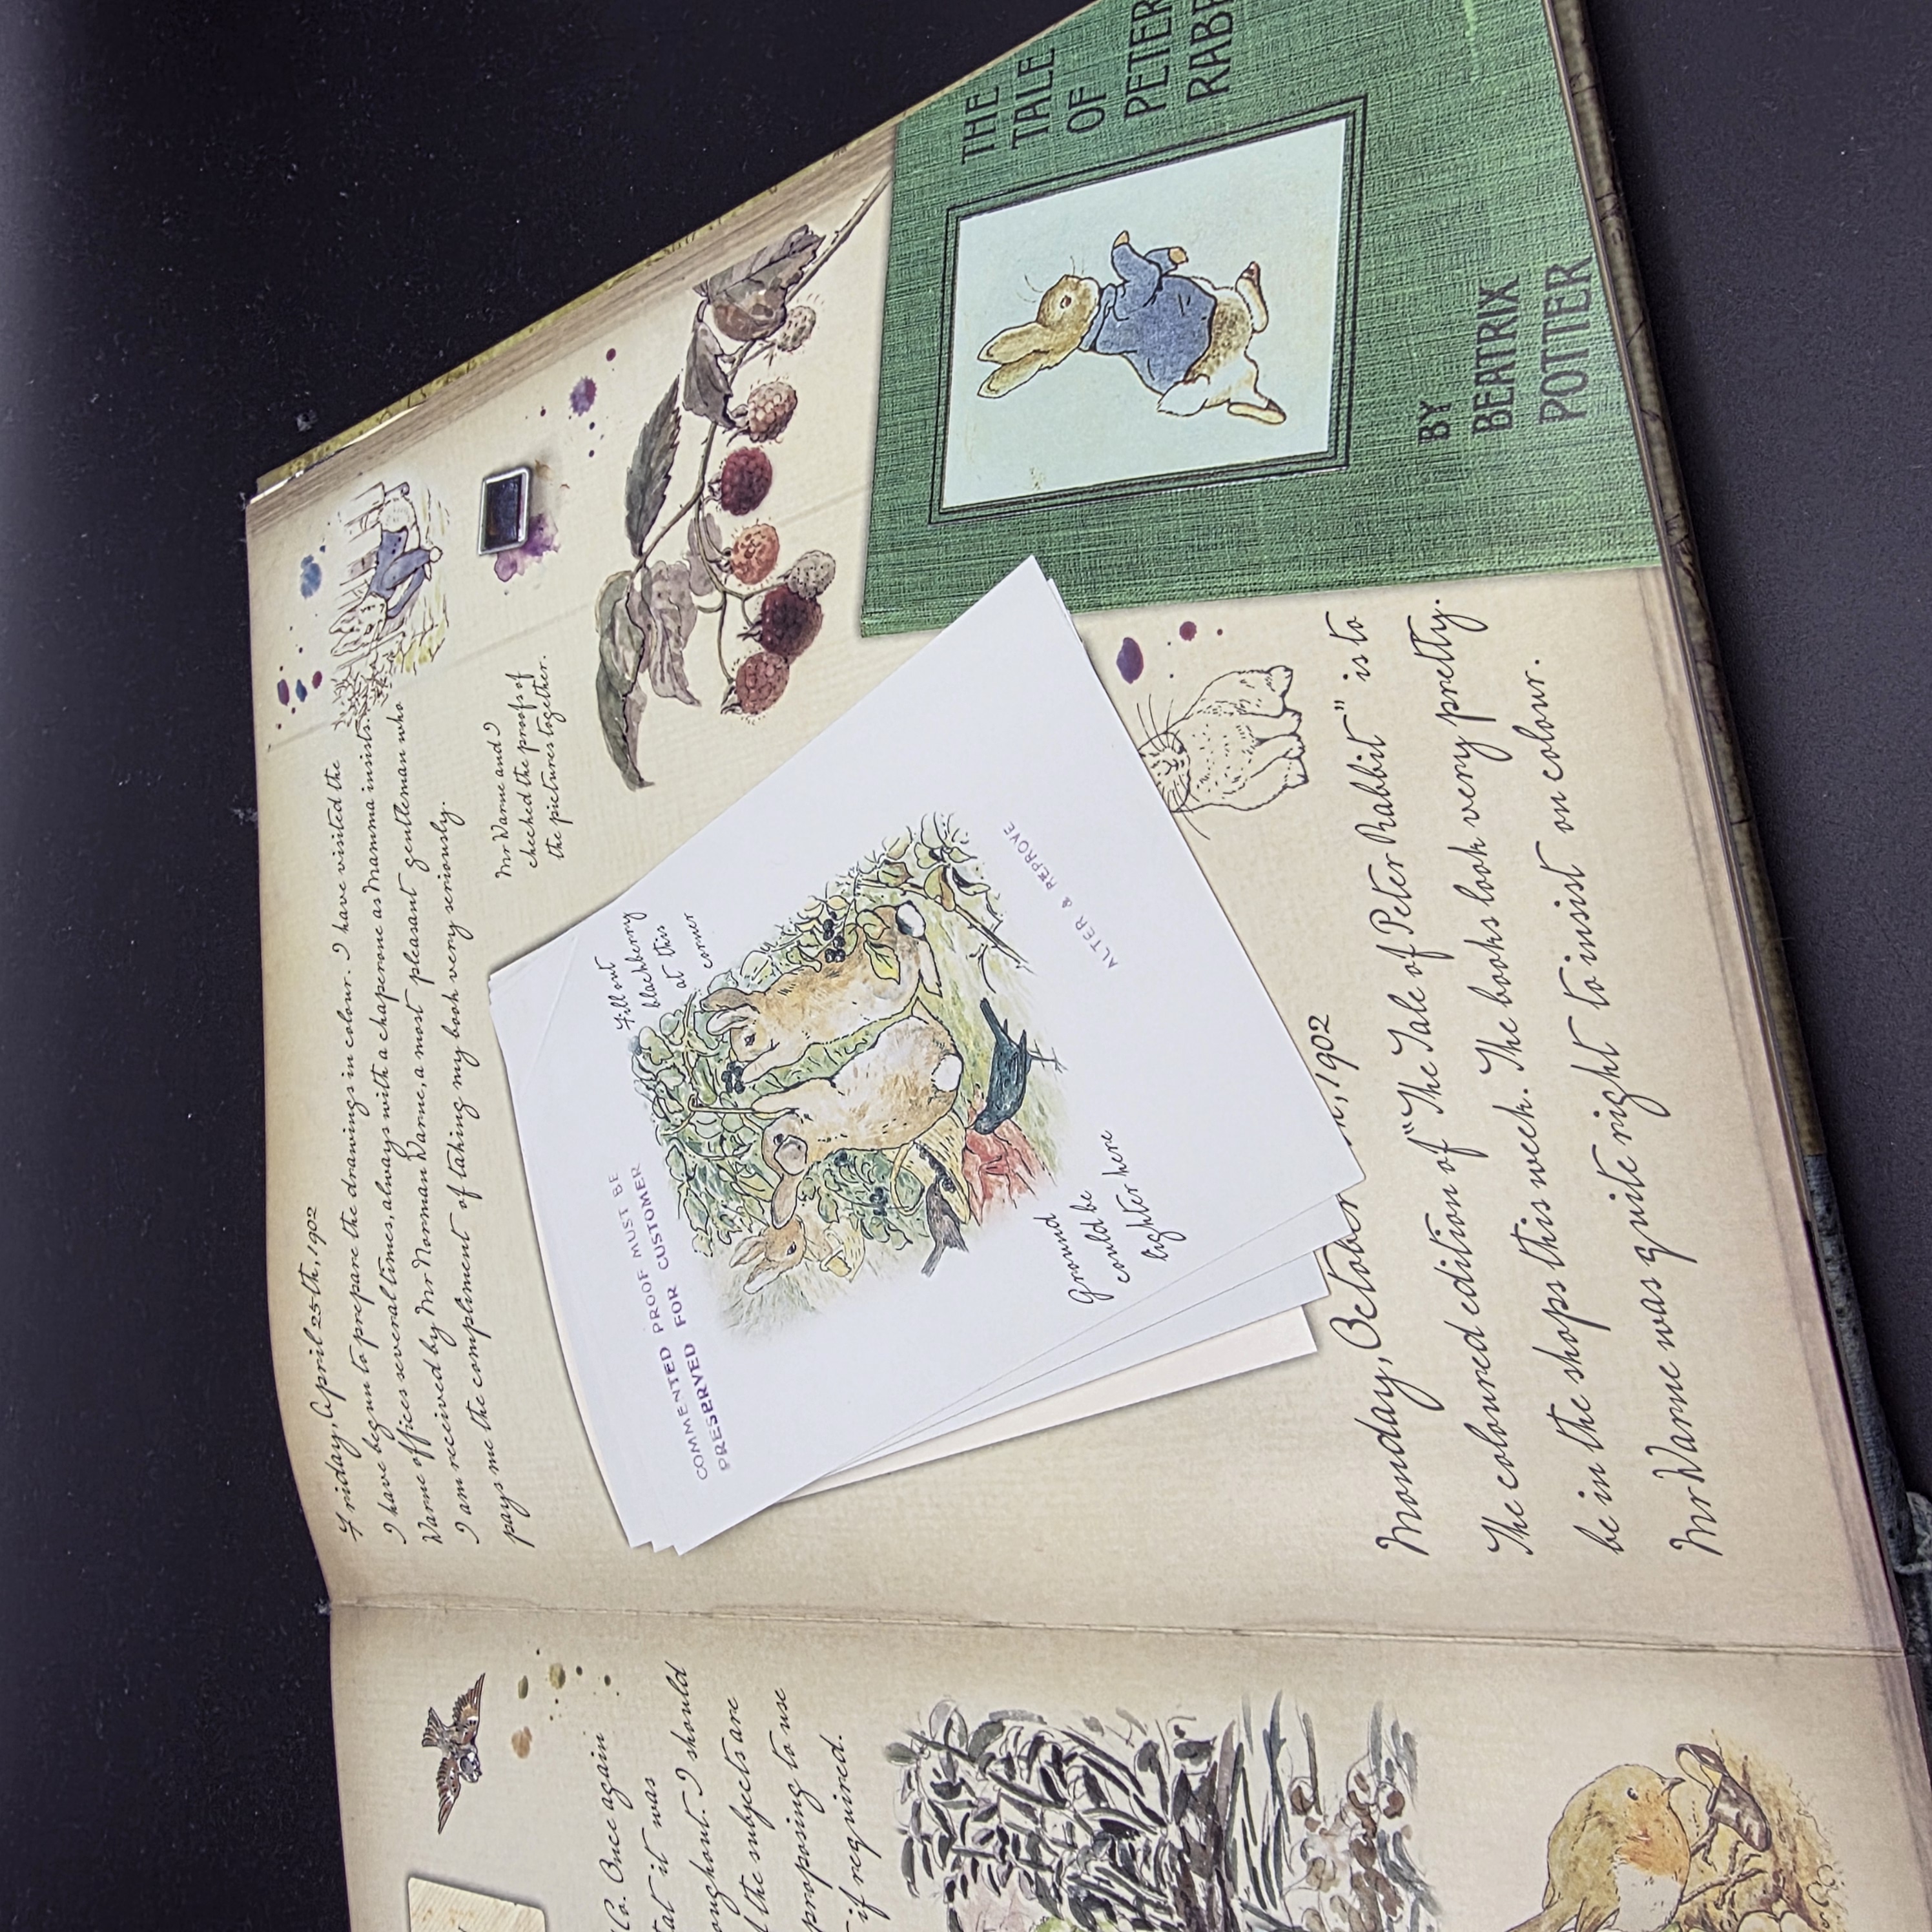 Co. Once again
it was
throughout. I should
the subjects are
proposing to use
if required.
Friday, April 25th, 1902
I have begun to prepare the drawings in colour. I have visited the
Warne offices several times, always with a chaperone as Mamma insists.
I am received by Mr Norman Warne, a most pleasant gentleman who
pays me the compliment of taking my book very seriously.
Mr Warne and I
checked the proofs of
the pictures together.
COMMENTED PROOF MUST BE
PRESERVED FOR CUSTOMER
Fill out
blackberry
at this
corner
Ground
could be
lighter here
ALTER & REPROVE
THE
TALE
OF
PETER
RABB
BY
BEATRIX
POTTER
Monday, October 1902
The coloured edition of "The Tale of Peter Rabbit" is to
be in the shops this week. The books look very pretty.
Mr Warne was quite right to insist on colour.